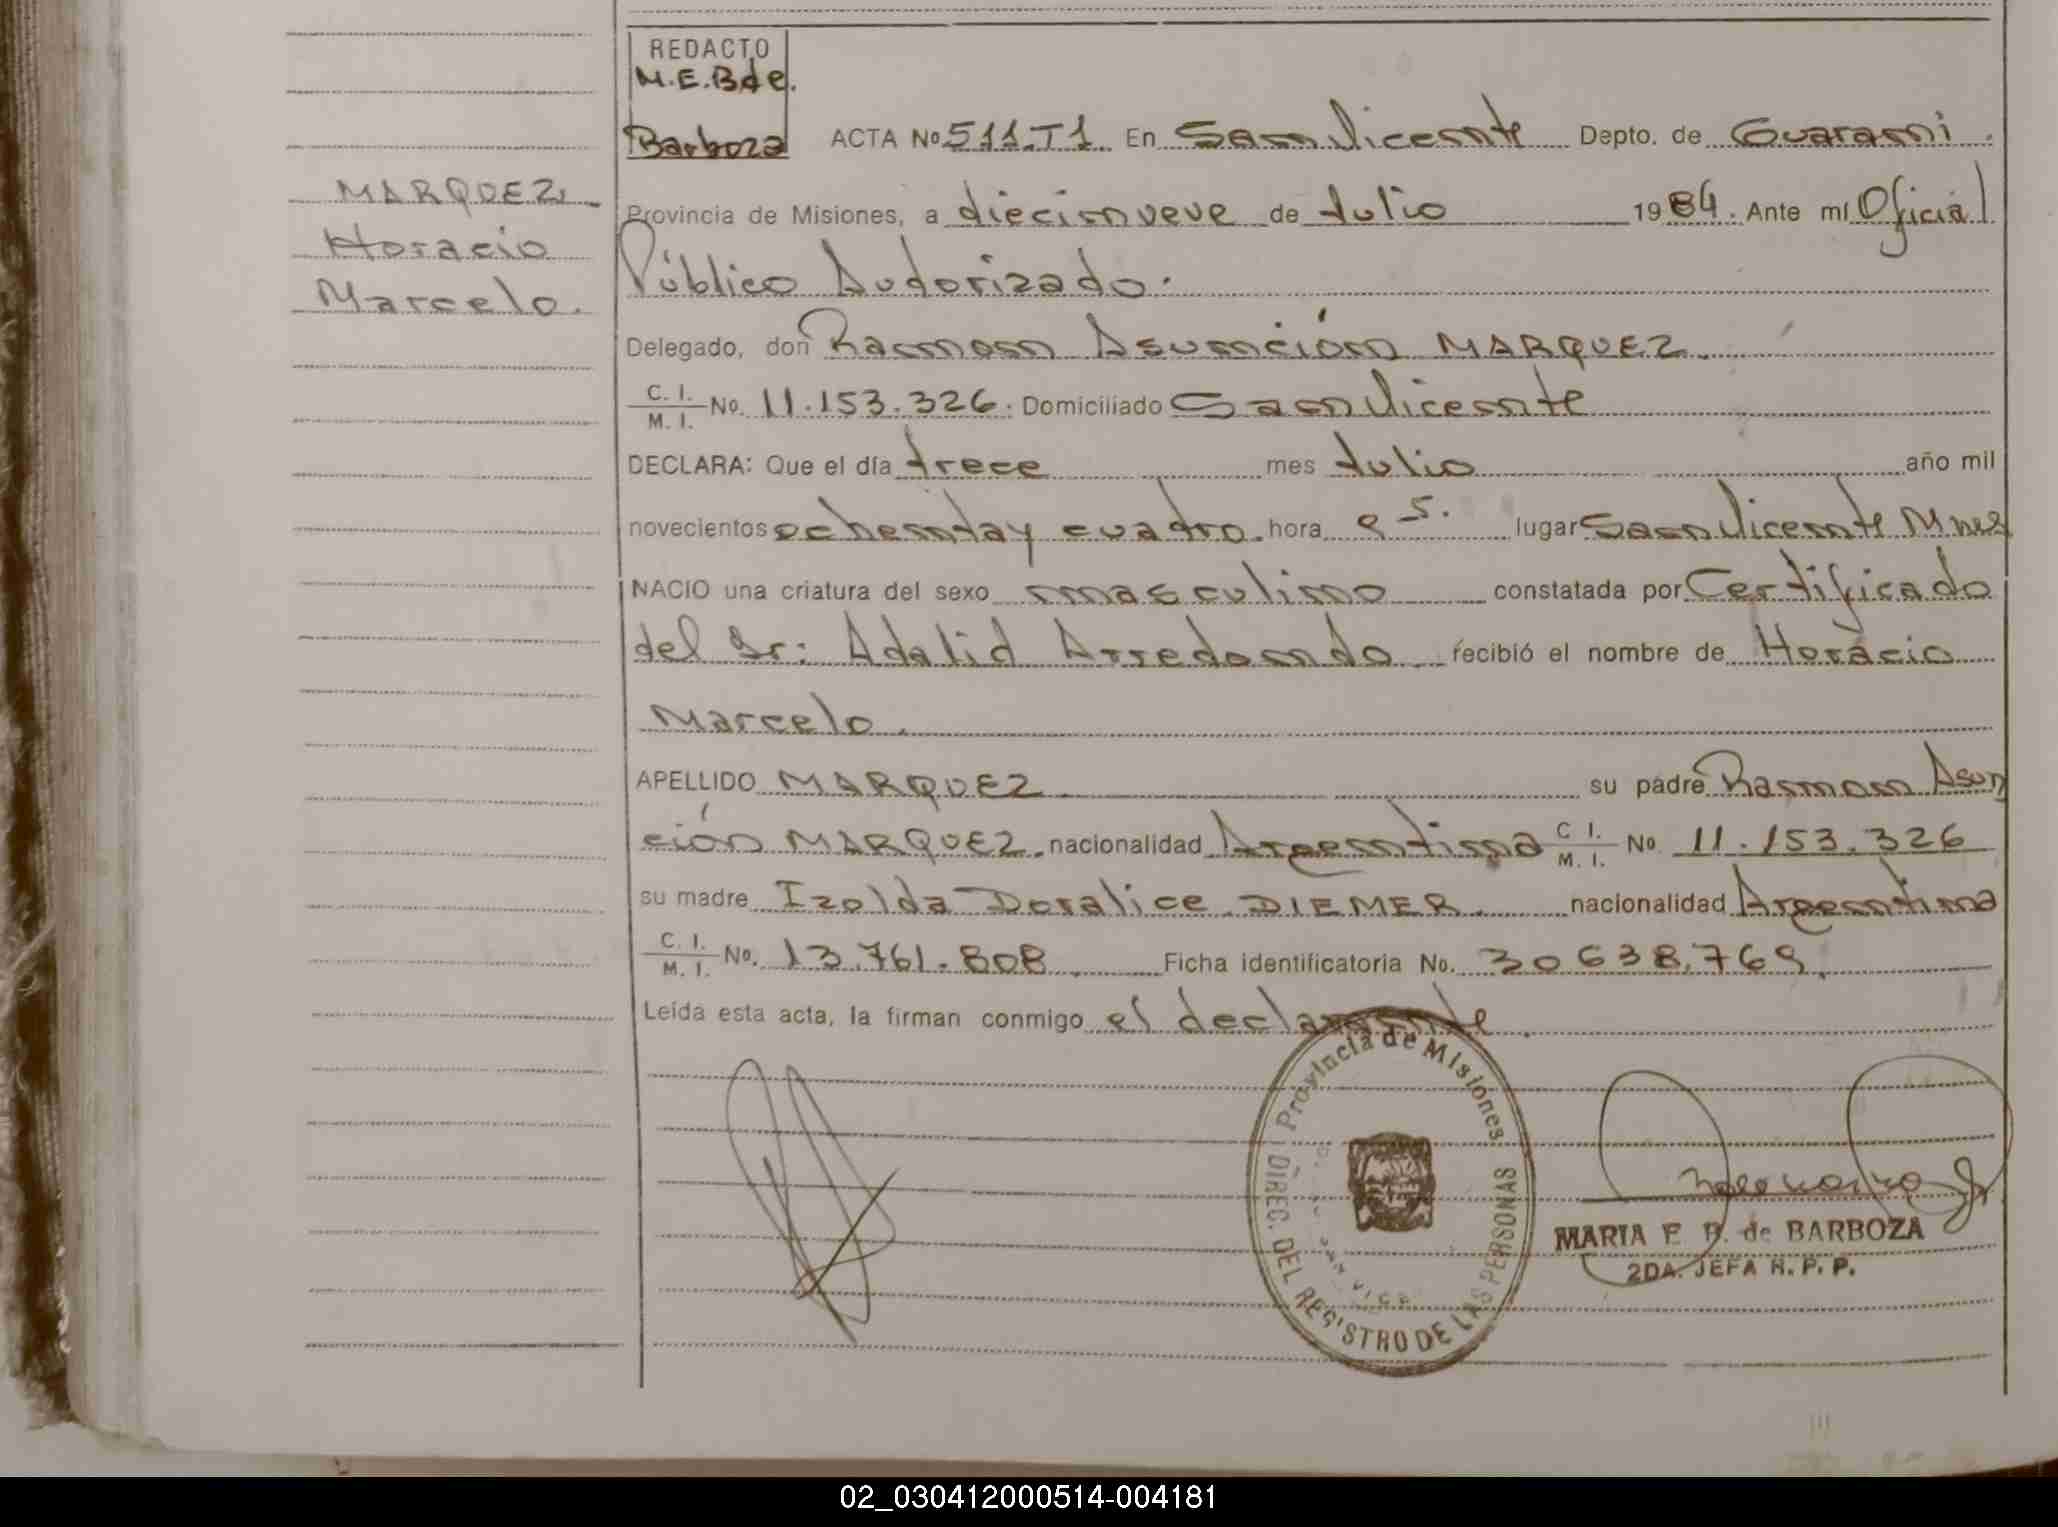 REDACTO
M.E.B de.
Barboza
ACTA No 511.T1. En San Vicente Depto. de Guarani.
MARQUEZ
Horacio
Marcelo.
Provincia de Misiones, a diecinueve de Julio 1984. Ante mí Oficial
Público Autorizado.
Delegado, don Ramon Asunción MARQUEZ.
C. I. M. I. No. 11.153.326. Domiciliado San Vicente
DECLARA: Que el día trece mes Julio año mil
novecientos ochenta y cuatro. hora lugar San Vicente Mnes
NACIO una criatura del sexo masculino constatada por Certificado
del Dr: Adalid Arredondo recibió el nombre de Horacio
Marcelo.
APELLIDO MARQUEZ su padre Ramon Asun
ción MARQUEZ. nacionalidad Argentina C. I. M. I. No 11.153.326
su madre Izolda Doralice DIEMER. nacionalidad Argentina
C. I. M. I. No. 13.761.808. Ficha identificatoria No. 30638.769.
Leída esta acta, la firman conmigo el declarante.
Provincia de Misiones
DIREC. DEL REGISTRO DE LAS PERSONAS
MARIA E. B. de BARBOZA
2DA. JEFA R. P. P.
02_030412000514-004181